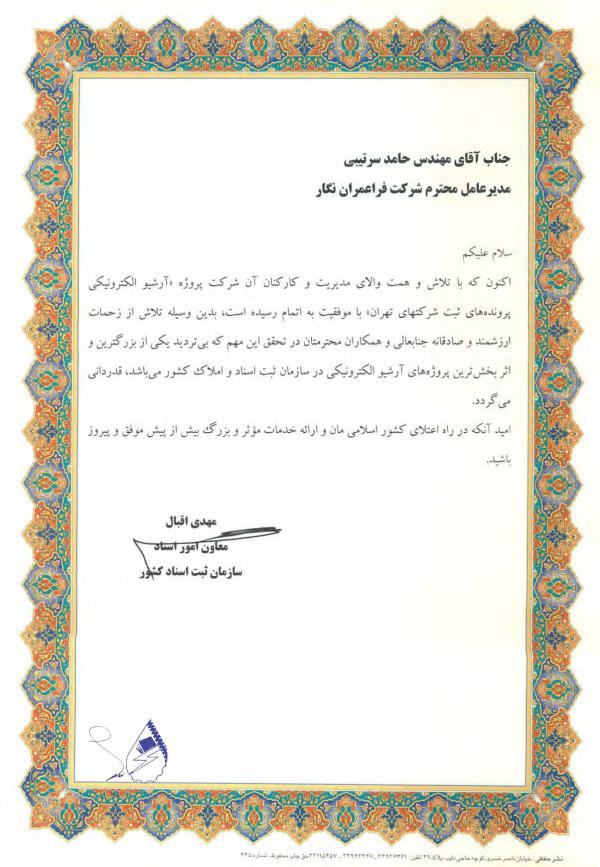 جناب آقای مهندس حامد سرتیبی
مدیرعامل محترم شرکت فراعمران نگار
سلام علیکم
اکنون که با تلاش و همت والای مدیریت و کارکنان آن شرکت پروژه «آرشیو الکترونیکی
پرونده‌های ثبت شرکتهای تهران» با موفقیت به اتمام رسیده است، بدین وسیله تلاش از زحمات
ارزشمند و صادقانه جنابعالی و همکاران محترمتان در تحقق این مهم که بی‌تردید یکی از بزرگترین و
اثر بخش‌ترین پروژه‌های آرشیو الکترونیکی در سازمان ثبت اسناد و املاک کشور می‌باشد، قدردانی
می‌گردد.
امید آنکه در راه اعتلای کشور اسلامی مان و ارائه خدمات مؤثر و بزرگ بیش از پیش موفق و پیروز
باشید.
مهدی اقبال
معاون امور اسناد
سازمان ثبت اسناد کشور
نشر حقانی: خیابان ناصر خسرو، کوچه حاجی نایب، پلاک ۲۹ تلفن: ۳۳۹۲۶۳۶۱ - ۳۳۹۲۳۳۲۷ - ۳۳۱۱۵۴۵۷ حق چاپ محفوظ. شماره ۶۴۵